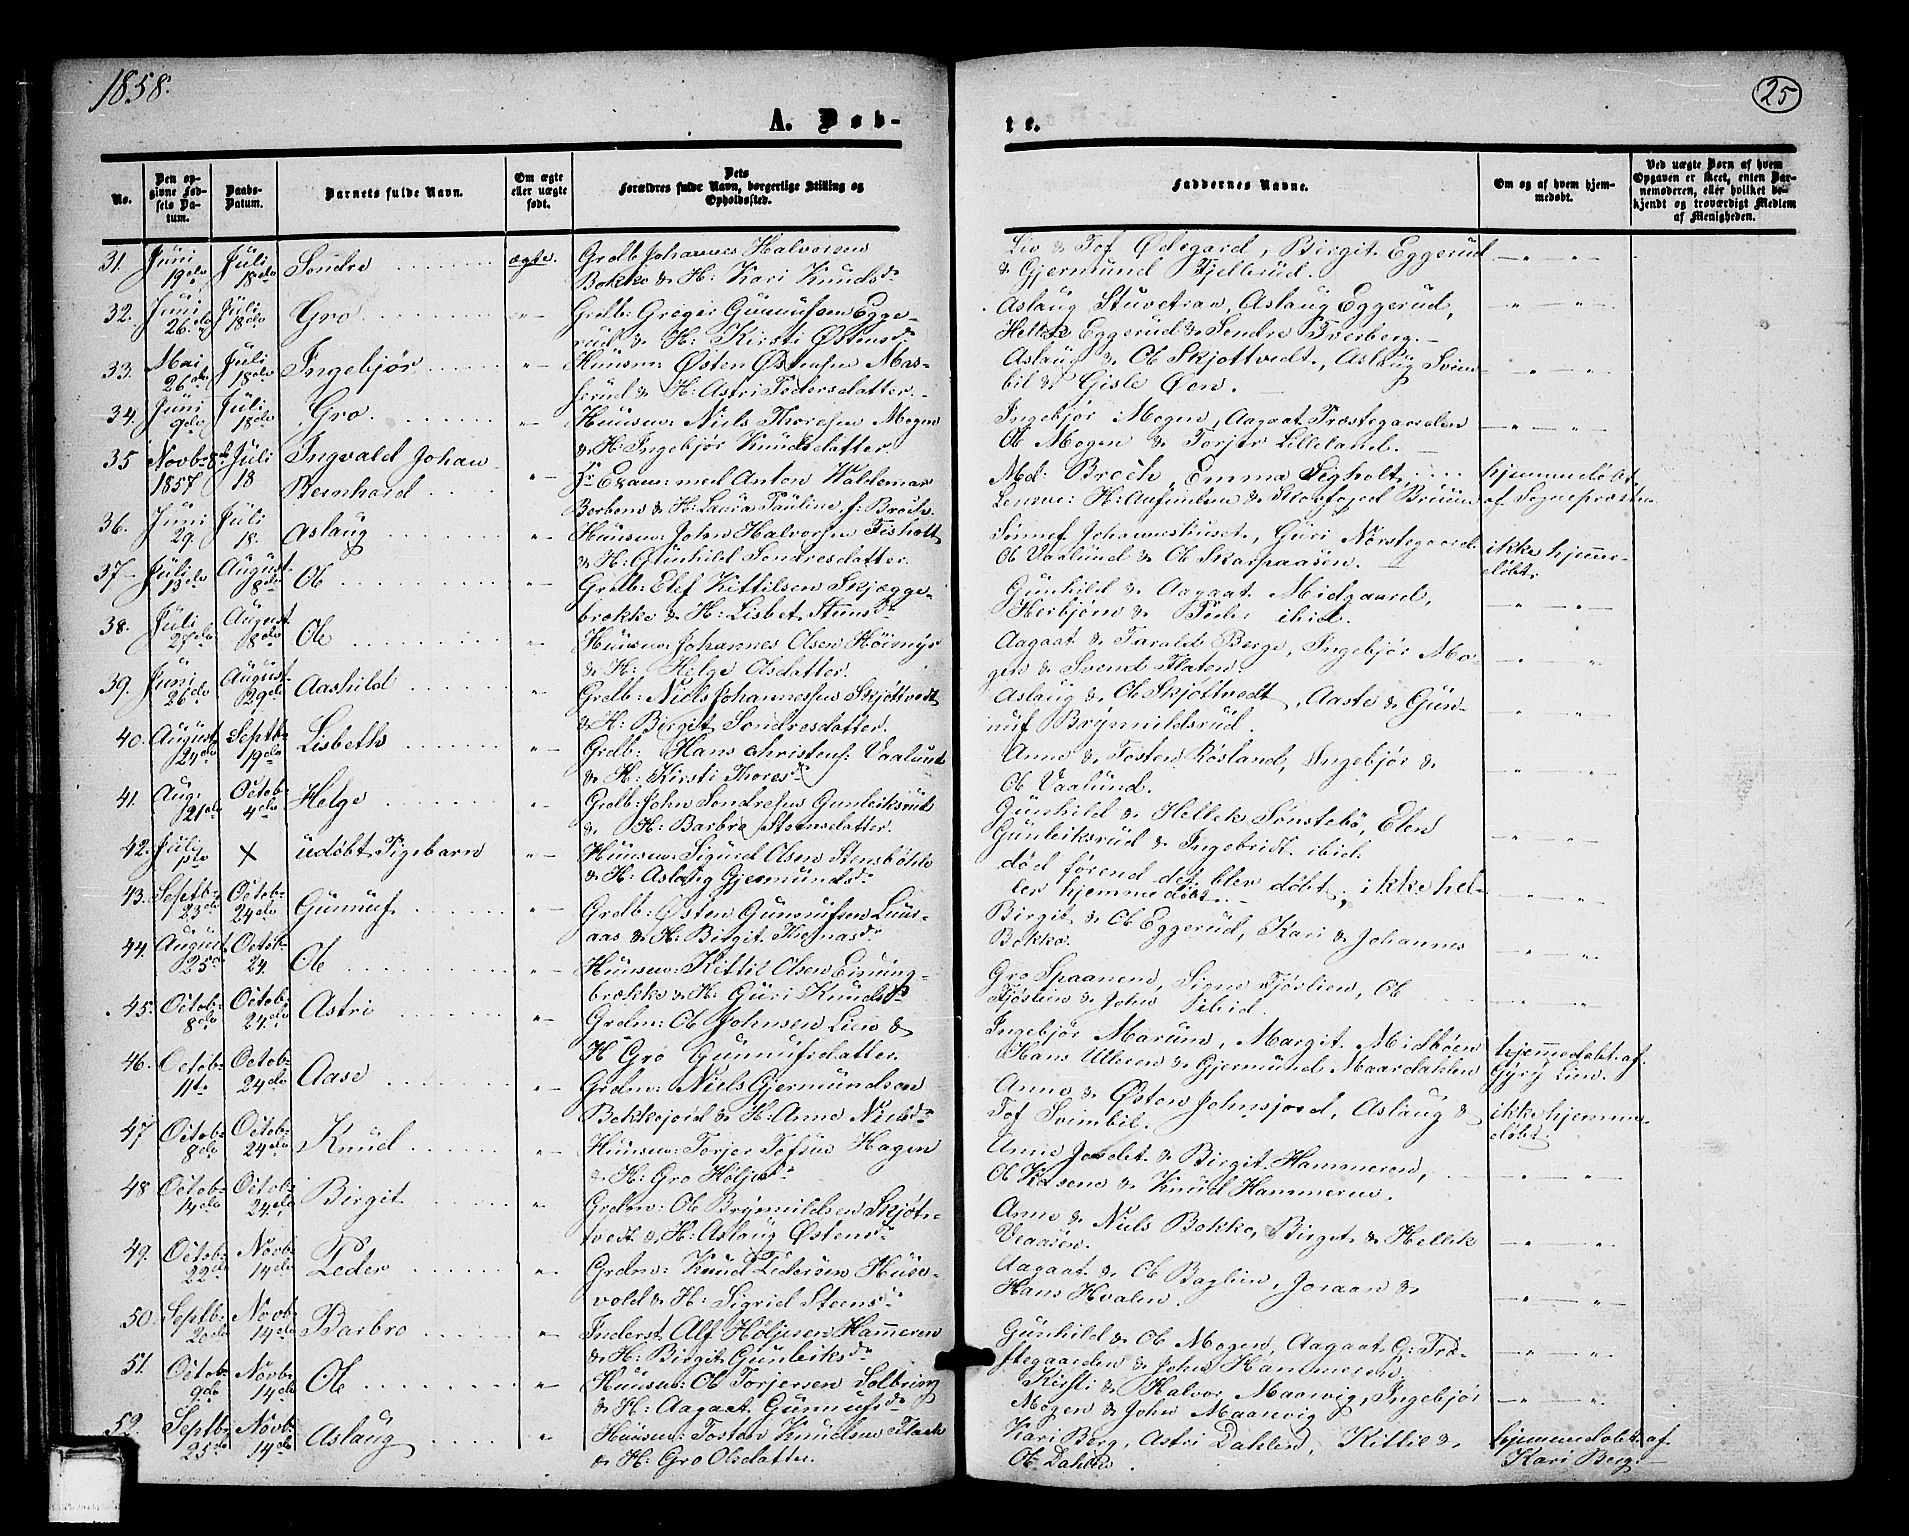 1858.
25
A. Døb-
te.
No.
Den op-
givne Fød-
sels Da-
tum.
Daabs-
Datum.
Barnets fulde Navn.
Om ægte
eller uægte
født.
Dets
Forældres fulde Navn, borgerlige Stilling og
Opholdssted.
Faddernes Navne.
Om og af hvem hjem-
medøbt.
Ved uægte Børn af hvem
Opgaven er skeet, enten Bar-
nemoderen, eller hvilket be-
kjendt og troværdigt Medlem
af Menigheden.
31. Juni 19de Juli 18de Sondre ægte. Grdb Johannes Halvorsen
Bokko & H: Kari Knudsdr
Liv & Tof Ødegard, Birgit Eggerud
& Gjermund Fjellerud.
32. Juni 26de Juli 18de Gro Grdb: Greger Gunnufsen Egge-
rud & H: Kirsti Østensdr
Aslaug Stuvetraa, Aslaug Eggerud,
Hellek Eggerud & Sondre Tverberg.
33. Mai 26de Juli 18de Ingebjør Huusm: Østen Østensen Mas-
serud & H: Astri Pedersdatter.
Aslaug & Ol Skjottvedt, Aslaug Svim-
bil & Gisle Øen.
34. Juni 9de Juli 18de Gro. Huusm: Niels Thoresen Mogen
& H: Ingebjør Knudsdatter.
Ingebjør Mogen, Aagaat Præstegaarden
Ol Mogen & Torjer Lilleland.
35 Novbr 8de 1857 Juli 18 Ingvald Johan
Bernhard
Exam: med Anton Waldemar
& H: Laura Pauline f: Broch.
Md: Broch, Emma Sigholt,
hjemmedøbt
af Sognepræsten
36. Juni 29. Juli 18. Aslaug Huusm: John Halvorsen Fisholt
& H: Gunhild Sondresdatter.
Johanneshuset, Guri Norstegaard
Ol Vaalund & Ol Skarpaasen.
ikke hjemme-
døbt.
37 Juli 13de August 8de Ol Grdb: Elef Kittilsen Skjægge-
brække & H: Lisbet Steensdr
Gunhild & Aagaat Midgaard,
Herbjørn & Peder ibid.
38. Juli 27de August 8de Ol Huusm: Johannes Olsen Höimyr
& H: Helge Olsdatter.
Aagaat & Tarald Berge, Ingebjør Mo-
gen & Svend Flaten.
39. Juni 26de August 29de Aashild Grdb: Niels Johannessen Skjøttvedt
& H: Birgit Sondresdatter.
Aslaug & Ol Skjøttvedt, Aaste & Gun-
nuf Brynnildsrud.
40. August 24de Septb: 19de Lisbeth Grdb: Hans Christens: Vaalund
& H: Kirsti Thoresdr
Anne & Tosten Røsland, Ingebjør &
Ol Vaalund.
41. Aug: 21de Octob: 4de Helge Grdb: John Sondresen Gunleiksrud
& H: Barbro Steensdatter.
Gunhild & Hellek Sønstebø, Elen
Gunleiksrud & Ingebridt ibid.
42. July X udøbt Pigebarn Huusm: Sigurd Olsen Stensbøhle
& H: Aslaug Gjermundsdr
død førend det blev døbt, ikke hel-
ler hjemmedøbt.
43. Septb: 23de Octob: 24de Gunnuf Grdb: Østen Gunnufsen Luus-
aas & H: Birgit Thomasdr
Birgit & Ol Eggerud, Kari & Johannes
Bokko.
44. August 25de Octob: 24. Ol Huusm: Kittil Olsen Eisung-
brække & H: Guri Knudsdr
Gro Spaanem, Signe Fjøslien, Ol
Fjøslien & John ibid.
45. Octob: 8de Octob: 24. Astri Grdm: Ol Johnsen Lien &
H: Gro Gunnufsdatter.
Ingebjør Marum, Margit Midbøen
Hans Ulleren & Gjermund Maardahlen
hjemmedøbt af
Gyry Lien.
46. Octob: 11te Octob: 24de Aase Grdm: Niels Gjermundsen
Bekkejord & H: Anne Nielsdr
Anne & Østen Johnsjord, Aslaug &
Tof Svimbil.
ikke hjemme-
døbt.
47 Octob: 8de Octob: 24de Knud Huusm: Torjer Tofsen Hagen
& H: Gro Høljesdr
Anne Jondet & Birgit Hammeren,
Ol Kaasene & Knud Hammeren.
48 Octob: 14de Octob: 24. Birgit Grdm: Ol Brynnildsen Skjøt-
tvedt & H: Aslaug Østensdr
Anne & Niels Bokko, Birget & Hellik
Vraasen.
49. Octob: 22de Novb: 14de Peder Grdm: Knud Pedersen Huse-
vold & H: Sigrid Steensdr
Aagaat & Ol Baglien, Joraan &
Hans Hvalen.
50. Septb: 20de Novb: 14de Barbro Inderst Alf Höljesen Hammeren
& H: Birgit Gunleiksdr
Gunhild & Ol Mogen, Aagaat G: Præ-
stegaarden & John Hammeren.
51. Octob: 9de Novb: 14de Ol Huusm: Ol Torjersen Solbring
& H: Aagaat Gunnufsdr
Kirsti & Halvor Maarvig, Ingebjør
Mogen & John Maarvig
52. Septb: 25de Novb: 14de Aslaug Huusm: Tosten Knudsen
& H: Gro Olsdatter.
Kari Berg, Astri Dahlen, Kittil &
Ol Dahlen.
hjemmedøbt af
Kari Berg.